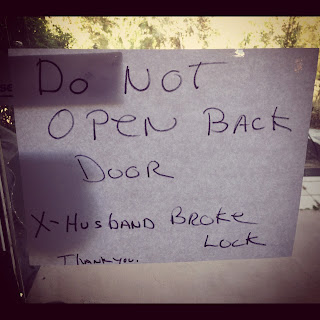 Do NOT
OPEN BACK
DOOR
X-HUSBAND BROKE
LOCK
THANK YOU.